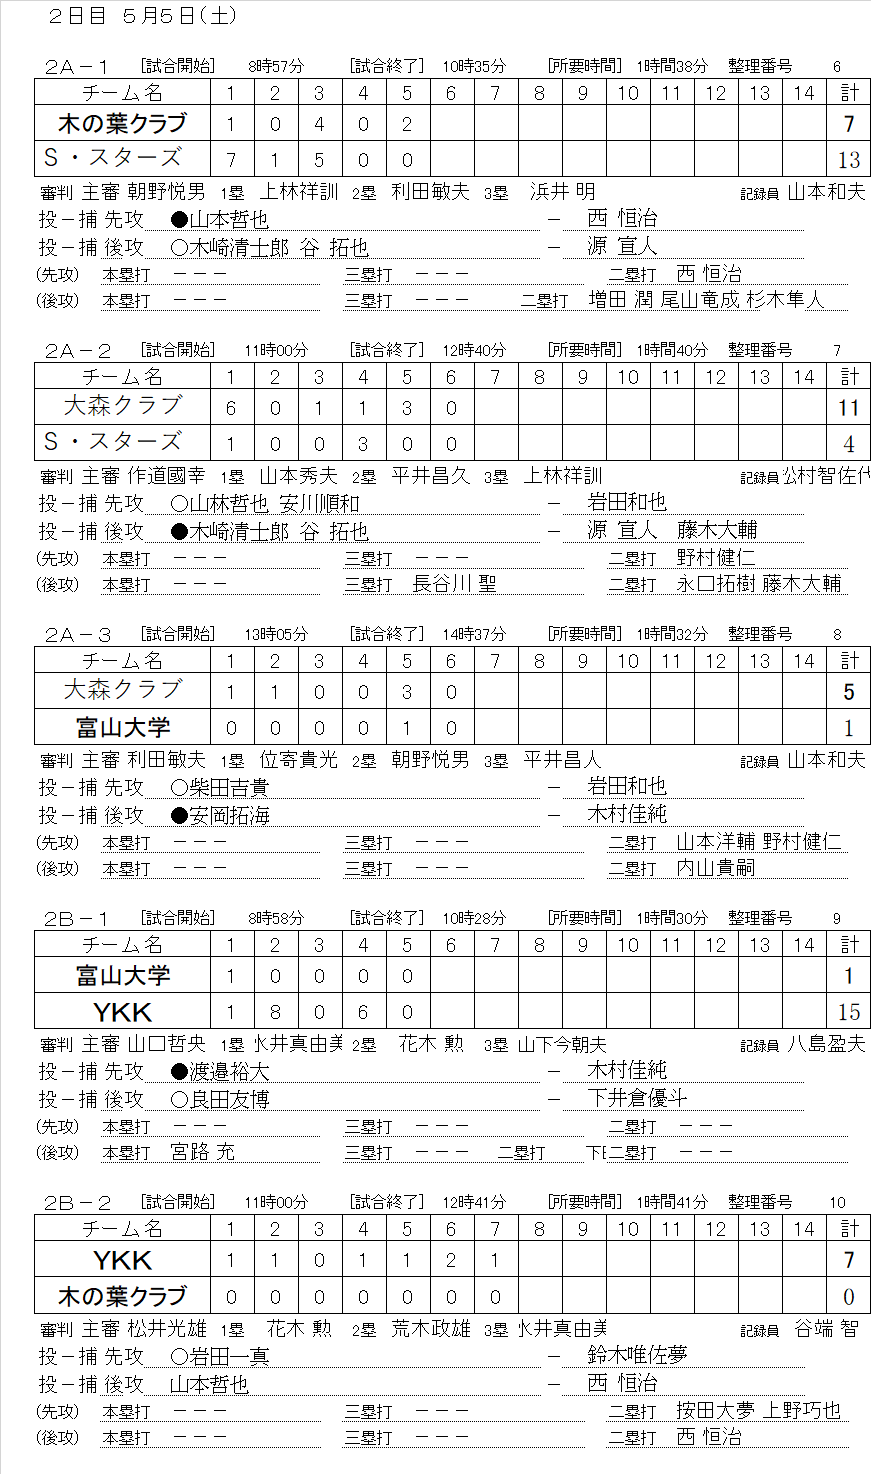 ２日目 ５月５日（土）
２Ａ－１ [試合開始] 8時57分 [試合終了] 10時35分 [所要時間] 1時間38分 整理番号 6
チーム名 1 2 3 4 5 6 7 8 9 10 11 12 13 14 計
木の葉クラブ 1 0 4 0 2 7
Ｓ・スターズ 7 1 5 0 0 13
審判 主審 朝野悦男 1塁 上林祥訓 2塁 利田敏夫 3塁 浜井 明 記録員 山本和夫
投－捕 先攻 ●山本哲也 － 西 恒治
投－捕 後攻 ○木崎清士郎 谷 拓也 － 源 宣人
(先攻) 本塁打 －－－ 三塁打 －－－ 二塁打 西 恒治
(後攻) 本塁打 －－－ 三塁打 －－－ 二塁打 増田 潤 尾山竜成 杉木隼人
２Ａ－２ [試合開始] 11時00分 [試合終了] 12時40分 [所要時間] 1時間40分 整理番号 7
チーム名 1 2 3 4 5 6 7 8 9 10 11 12 13 14 計
大森クラブ 6 0 1 1 3 0 11
Ｓ・スターズ 1 0 0 3 0 0 4
審判 主審 作道國幸 1塁 山本秀夫 2塁 平井昌久 3塁 上林祥訓 記録員 松村智佐代
投－捕 先攻 ○山林哲也 安川順和 － 岩田和也
投－捕 後攻 ●木崎清士郎 谷 拓也 － 源 宣人 藤木大輔
(先攻) 本塁打 －－－ 三塁打 －－－ 二塁打 野村健仁
(後攻) 本塁打 －－－ 三塁打 長谷川 聖 二塁打 永口拓樹 藤木大輔
２Ａ－３ [試合開始] 13時05分 [試合終了] 14時37分 [所要時間] 1時間32分 整理番号 8
チーム名 1 2 3 4 5 6 7 8 9 10 11 12 13 14 計
大森クラブ 1 1 0 0 3 0 5
富山大学 0 0 0 0 1 0 1
審判 主審 利田敏夫 1塁 位寄貴光 2塁 朝野悦男 3塁 平井昌人 記録員 山本和夫
投－捕 先攻 ○柴田吉貴 － 岩田和也
投－捕 後攻 ●安岡拓海 － 木村佳純
(先攻) 本塁打 －－－ 三塁打 －－－ 二塁打 山本洋輔 野村健仁
(後攻) 本塁打 －－－ 三塁打 －－－ 二塁打 内山貴嗣
２Ｂ－１ [試合開始] 8時58分 [試合終了] 10時28分 [所要時間] 1時間30分 整理番号 9
チーム名 1 2 3 4 5 6 7 8 9 10 11 12 13 14 計
富山大学 1 0 0 0 0 1
YKK 1 8 0 6 0 15
審判 主審 山口哲央 1塁 水井真由美 2塁 花木 勲 3塁 山下今朝夫 記録員 八島盈夫
投－捕 先攻 ●渡邉裕大 － 木村佳純
投－捕 後攻 ○良田友博 － 下井倉優斗
(先攻) 本塁打 －－－ 三塁打 －－－ 二塁打 －－－
(後攻) 本塁打 宮路 充 三塁打 －－－ 二塁打 下 二塁打 －－－
２Ｂ－２ [試合開始] 11時00分 [試合終了] 12時41分 [所要時間] 1時間41分 整理番号 10
チーム名 1 2 3 4 5 6 7 8 9 10 11 12 13 14 計
YKK 1 1 0 1 1 2 1 7
木の葉クラブ 0 0 0 0 0 0 0 0
審判 主審 松井光雄 1塁 花木 勲 2塁 荒木政雄 3塁 水井真由美 記録員 谷端 智
投－捕 先攻 ○岩田一真 － 鈴木唯佐夢
投－捕 後攻 山本哲也 － 西 恒治
(先攻) 本塁打 －－－ 三塁打 －－－ 二塁打 按田大夢 上野巧也
(後攻) 本塁打 －－－ 三塁打 －－－ 二塁打 西 恒治